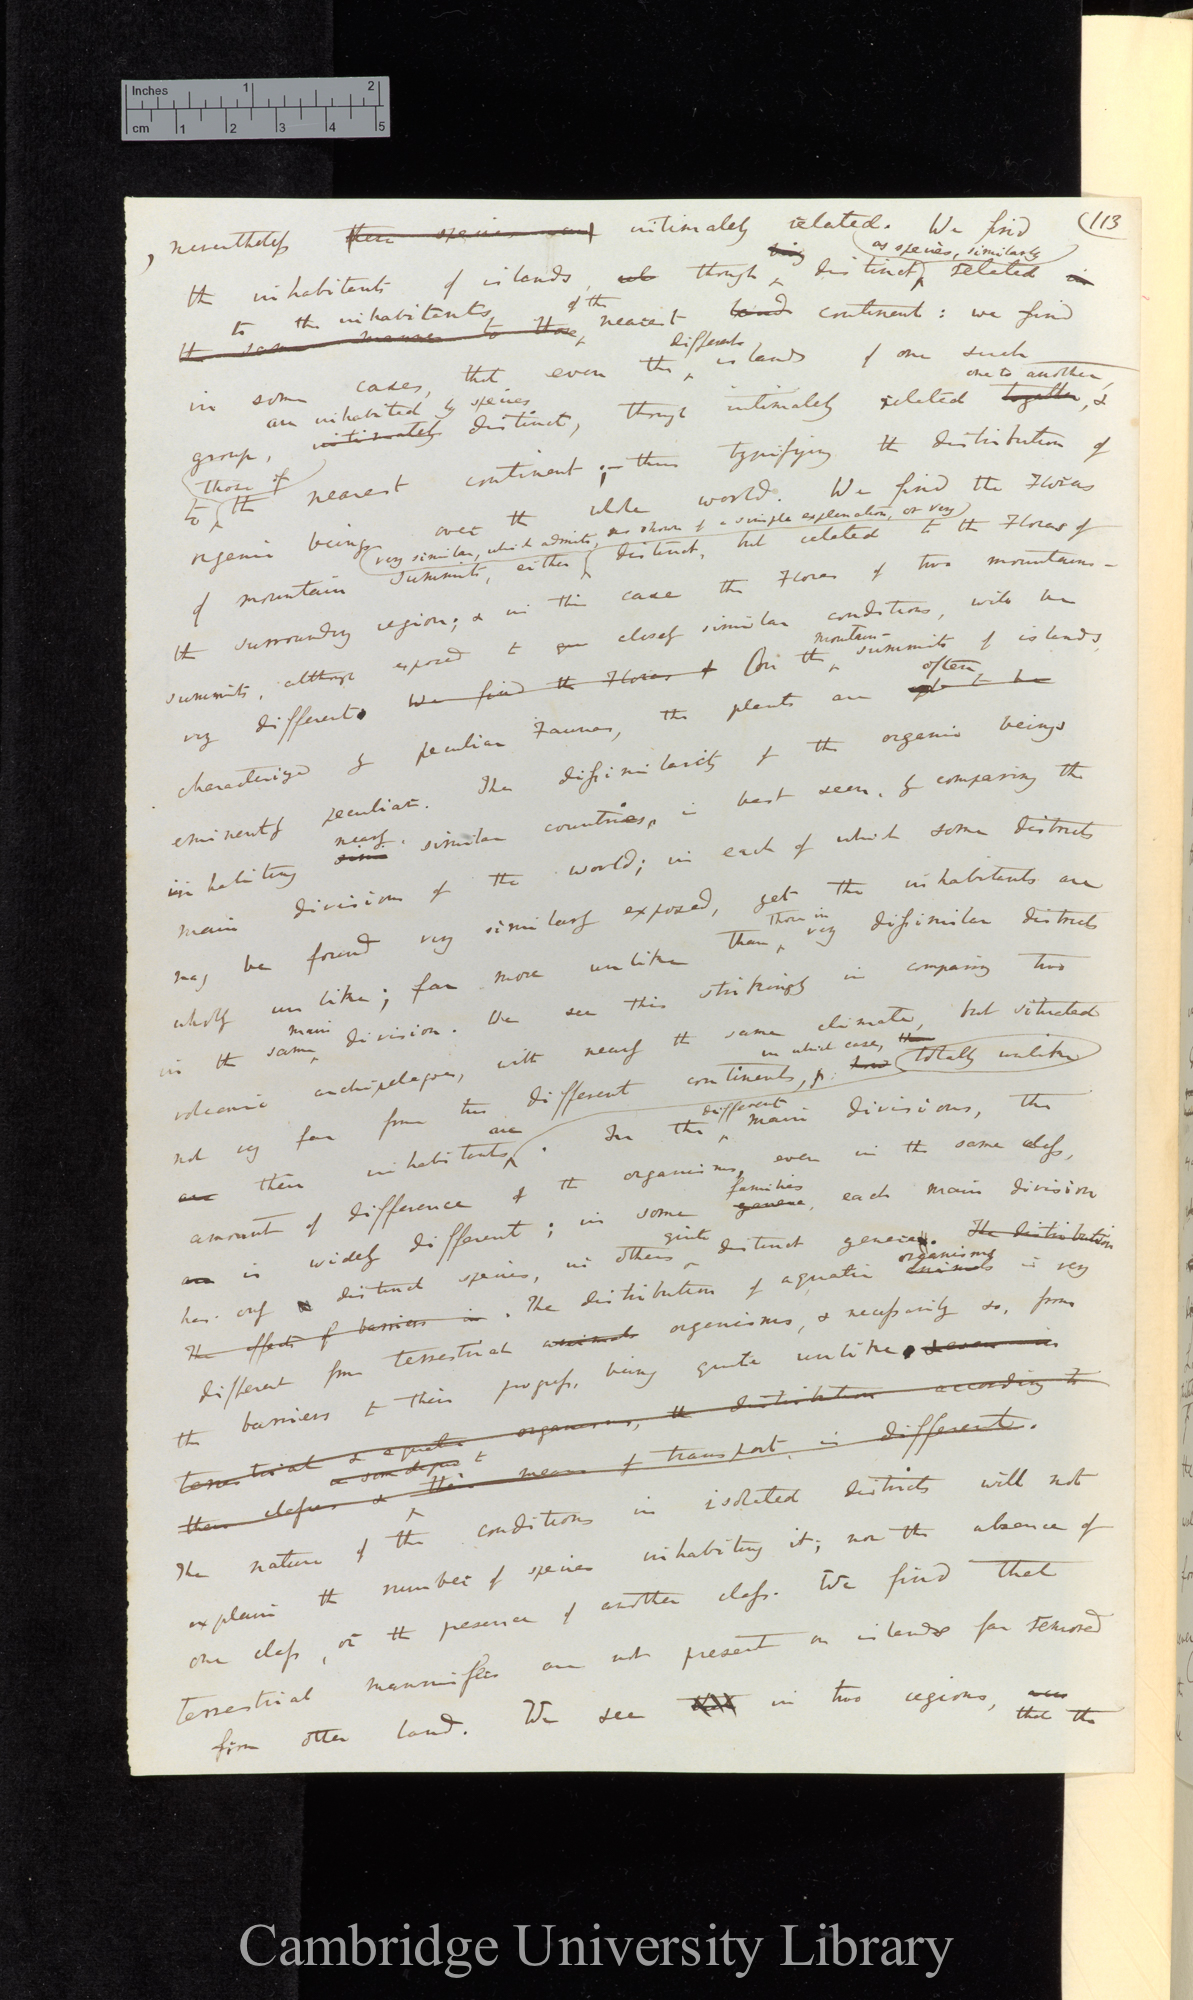 Inches 1 2
cm 1 2 3 4 5
(113
, nevertheless these species are intimately related. We find
being as species, similarly
the inhabitants of islands, though distinct, related in
to the inhabitants of the
the same manner to those nearest land continent: we find
different
in some cases, that even the islands of one such
are inhabited by species one to another,
group, intimately distinct, though intimately related together, &
those of
to the nearest continent;– thus typifying the distribution of
organic beings over the whole world. We find the Floras
very similar, which admits, as shown of a simple explanation, or very
of mountain summits, either distinct, but related to the Floras of
the surrounding region; & in this case the Floras of two mountain-
summits, although exposed to closely similar conditions, will be
mountain-
very different. We find the Floras of On the summits of islands,
often
characterized by peculiar Faunas, the plants are
eminently peculiar. The dissimilarity of the organic beings
nearly
inhabiting similar countries, is best seen, by comparing the
main divisions of the world; in each of which some districts
may be found very similarly exposed, yet the inhabitants are
those in
wholly unlike; far more unlike than very dissimilar districts
main
in the same division. We see this strikingly in comparing two
volcanic archipelagoes, with nearly the same climate, but situated
in which case, totally unlike
not very far from two different continents,
are different
are their inhabitants. In the main divisions, the
amount of difference of the organisms, even in the same class,
families
is widely different; in some genera, each main division
quite
has only distinct species, in others distinct genera. The distribution
organisms
The effects of barriers in. The distribution of aquatic animals is very
different from terrestrial animals organisms, & necessarily so, from
the barriers to their progress, being quite unlike,
terrestrial & aquatic organisms, the distribution according to
in some degree to
their classes & their means of transport, is different.
The nature of the conditions in isolated districts will not
explain the number of species inhabiting it; nor the absence of
one class, or the presence of another class. We find that
terrestrial mammifers are not present on islands far removed
from other land. We see in two regions,
that the
Cambridge University Library